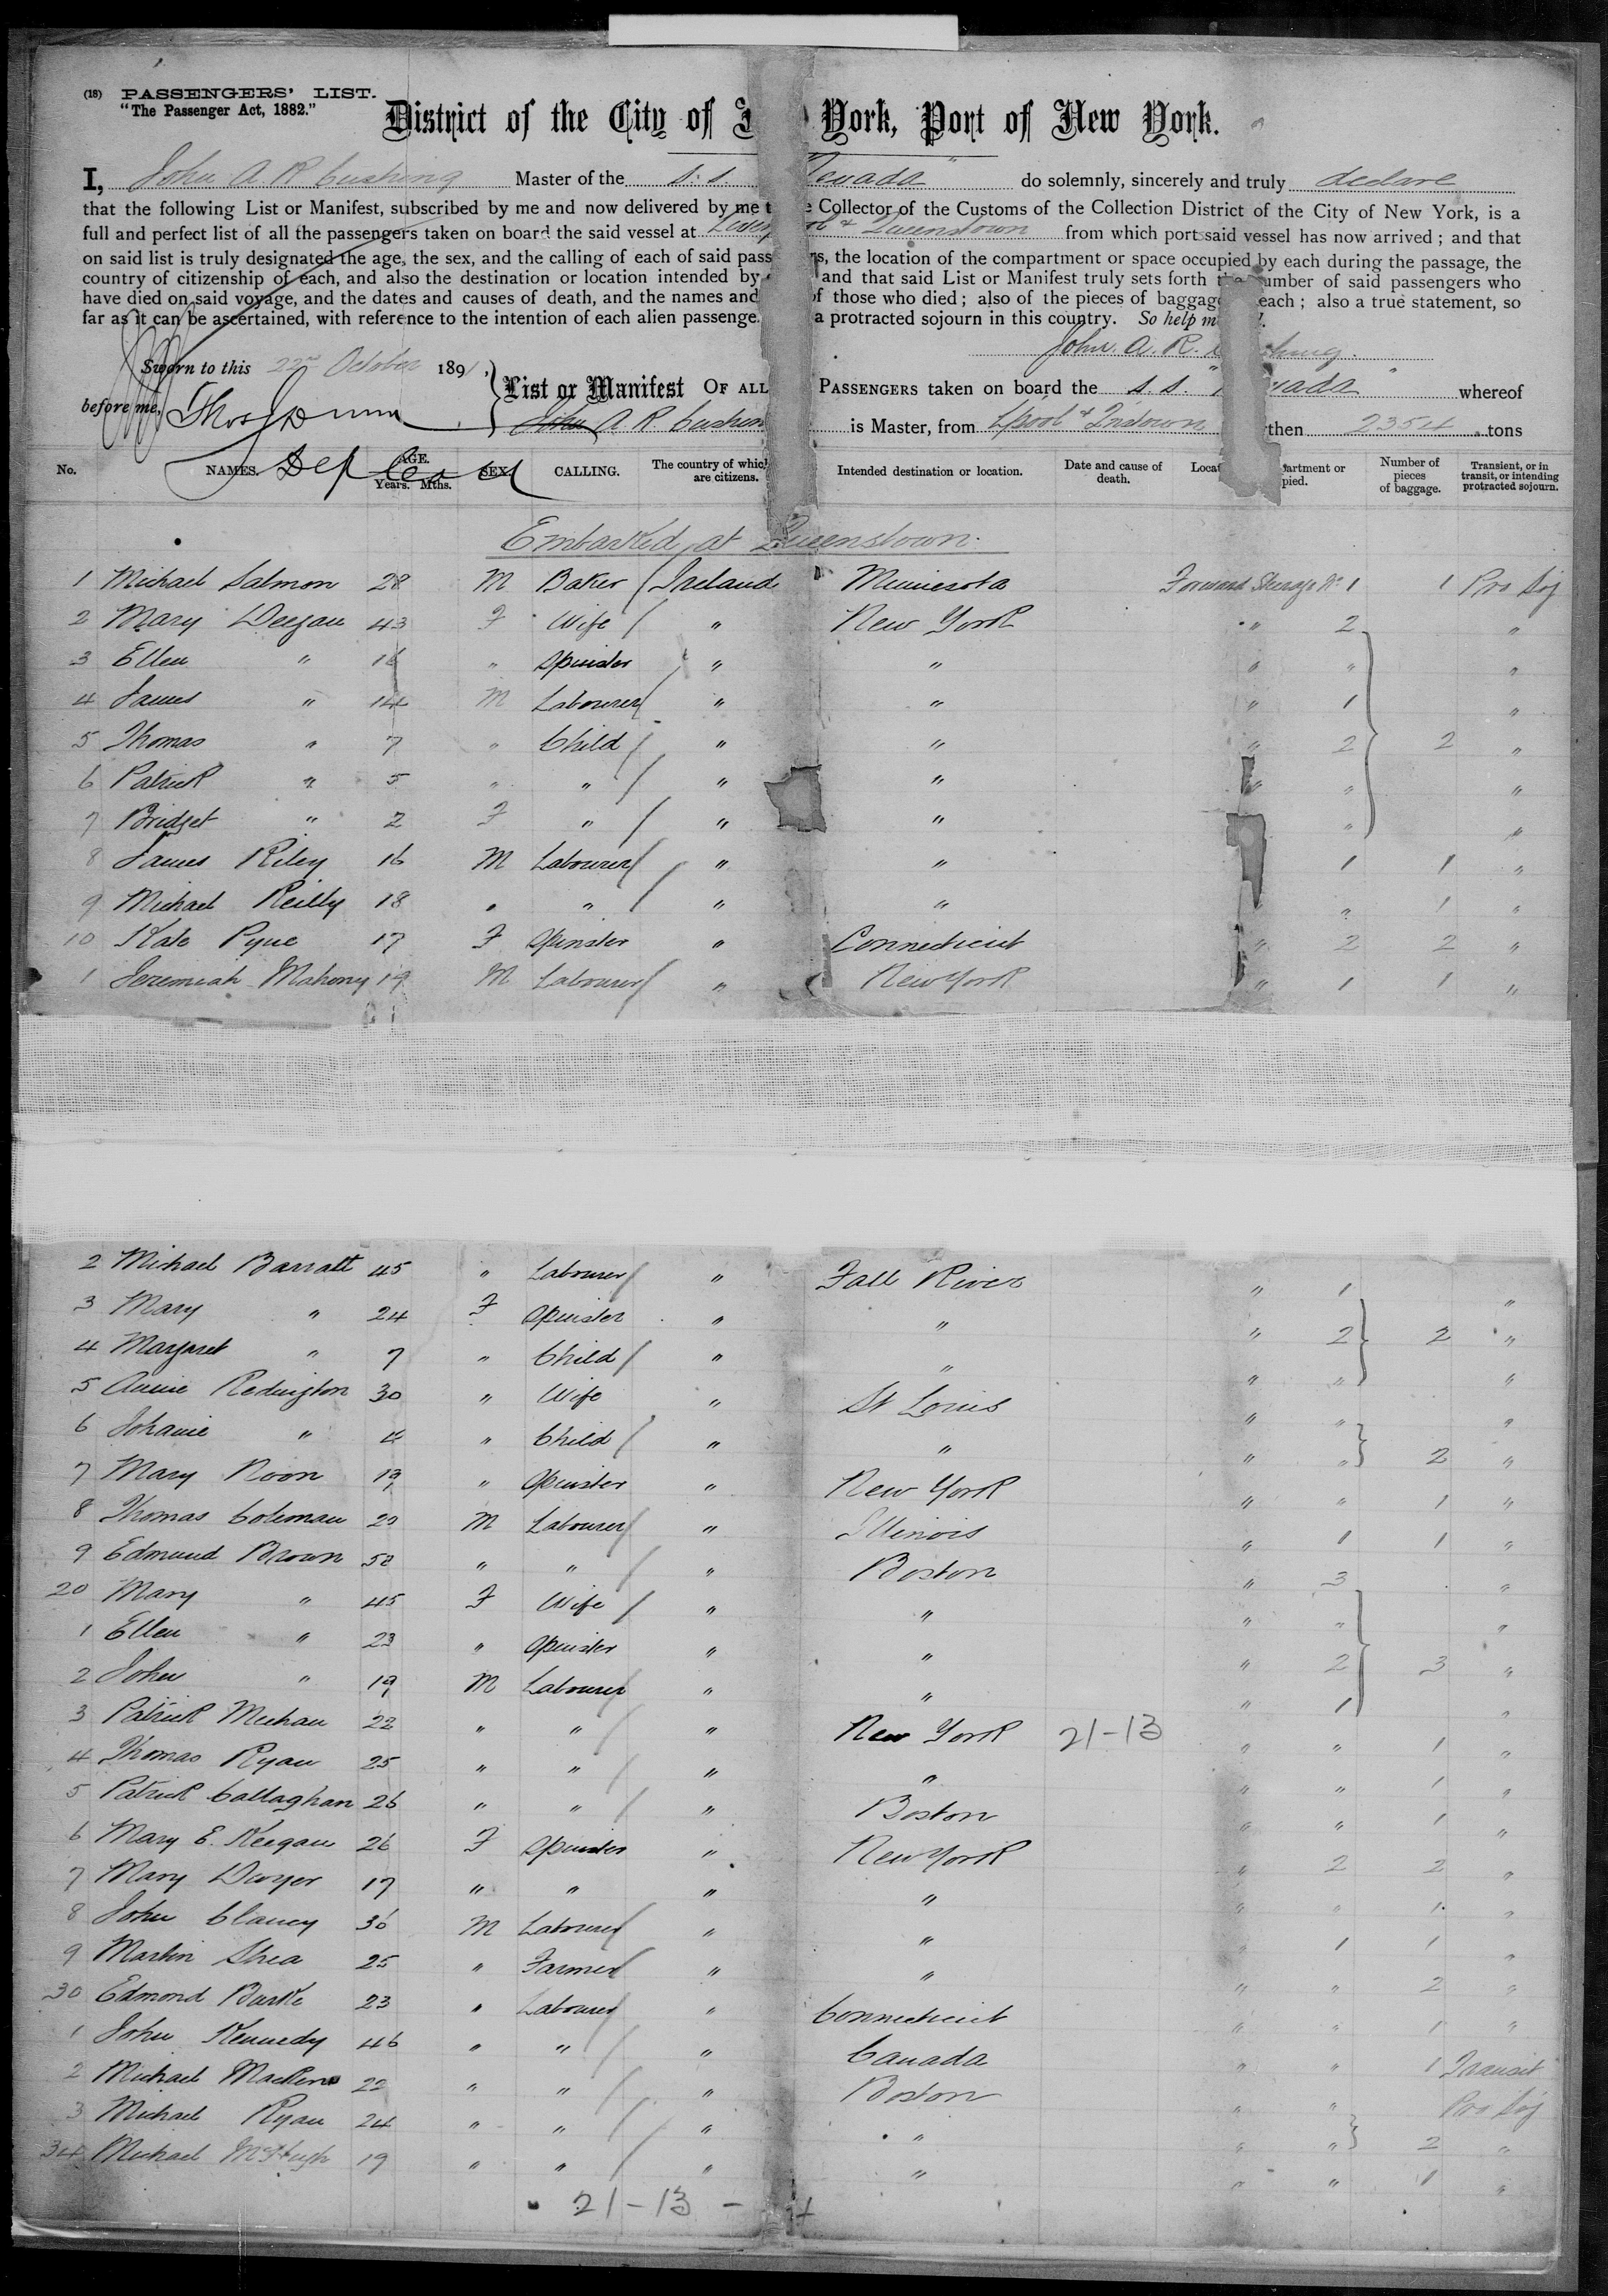 (18) PASSENGERS' LIST.
"The Passenger Act, 1882."
District of the City of York, Port of New York.
I, John A. R Cushing Master of the s.s. "Nevada" do solemnly, sincerely and truly declare
that the following List or Manifest, subscribed by me and now delivered by me Collector of the Customs of the Collection District of the City of New York, is a
full and perfect list of all the passengers taken on board the said vessel at & Queenstown from which port said vessel has now arrived; and that
on said list is truly designated the age, the sex, and the calling of each of said pass rs, the location of the compartment or space occupied by each during the passage, the
country of citizenship of each, and also the destination or location intended by and that said List or Manifest truly sets forth the number of said passengers who
have died on said voyage, and the dates and causes of death, and the names and of those who died; also of the pieces of baggage each; also a true statement, so
far as it can be ascertained, with reference to the intention of each alien passenge a protracted sojourn in this country. So help m
John. A. R. Cushing.
Sworn to this 22nd October 1891,
before me, Thos Dunn
Dep
List or Manifest OF ALL PASSENGERS taken on board the s.s. "Nevada" whereof
John A R Cushin is Master, from L'pool & Q'stown then 2354 tons
No. NAMES. AGE. Years. Mths. SEX. CALLING. The country of which are citizens. Intended destination or location. Date and cause of death. Locat artment or pied. Number of pieces of baggage. Transient, or in transit, or intending protracted sojourn.
Embarked at Queenstown.
1 Michael Salmon 28 M Baker / Ireland Minnesota Forward Steerage No 1 1 Pro Soj
2 Mary Deegan 43 F Wife / " New York " 2 "
3 Ellen " 16 " Spinster " " " " "
4 James " 14 M Labourer / " " " 1 "
5 Thomas " 7 " Child / " " " 2 2 "
6 Patrick " 5 " " / " " " " "
7 Bridget " 2 F " / " " " "
8 James Riley 16 M Labourer / " " 1 1 "
9 Michael Reilly 18 " " / " " " 1 "
10 Kate Pyne 17 F Spinster " Connecticut " 2 2 "
1 Jeremiah Mahony 19 M Labourer / " New York " 1 1 "
2 Michael Barratt 45 " Labourer / " Fall River " 1 "
3 Mary " 24 F Spinster " " " 2 2 "
4 Margaret " 7 " Child / " " " " "
5 Annie Redington 30 " Wife " St Louis " " "
6 Johanie " 4 " Child / " " " " 2 "
7 Mary Noon 19 " Spinster " New York " " 1 "
8 Thomas Coleman 20 M Labourer / " Illinois " 1 1 "
9 Edmund Brown 50 " " / " Boston " 3 "
20 Mary " 45 F Wife / " " " " "
1 Ellen " 23 " Spinster " " " 2 3 "
2 John " 19 M Labourer " " " 1 "
3 Patrick Meehan 22 " " / " New York 21-13 " " 1 "
4 Thomas Ryan 25 " " / " " " " 1 "
5 Patrick Callaghan 26 " " / " Boston " " 1 "
6 Mary E. Keegan 26 F Spinster " New York " 2 2 "
7 Mary Dwyer 17 " " " " " " 1 "
8 John Clancy 36 M Labourer / " " " 1 1 "
9 Martin Shea 25 " Farmer / " " " " 2 "
30 Edmond Burke 23 " Labourer / " Connecticut " " 1 "
1 John Kennedy 46 " " / " Canada " " 1 Transit
2 Michael 22 " " / " Boston " " Pro Soj
3 Michael Ryan 24 " " / " " " " 2 "
34 Michael McHugh 19 " " / " " " " 1 "
21-13 -